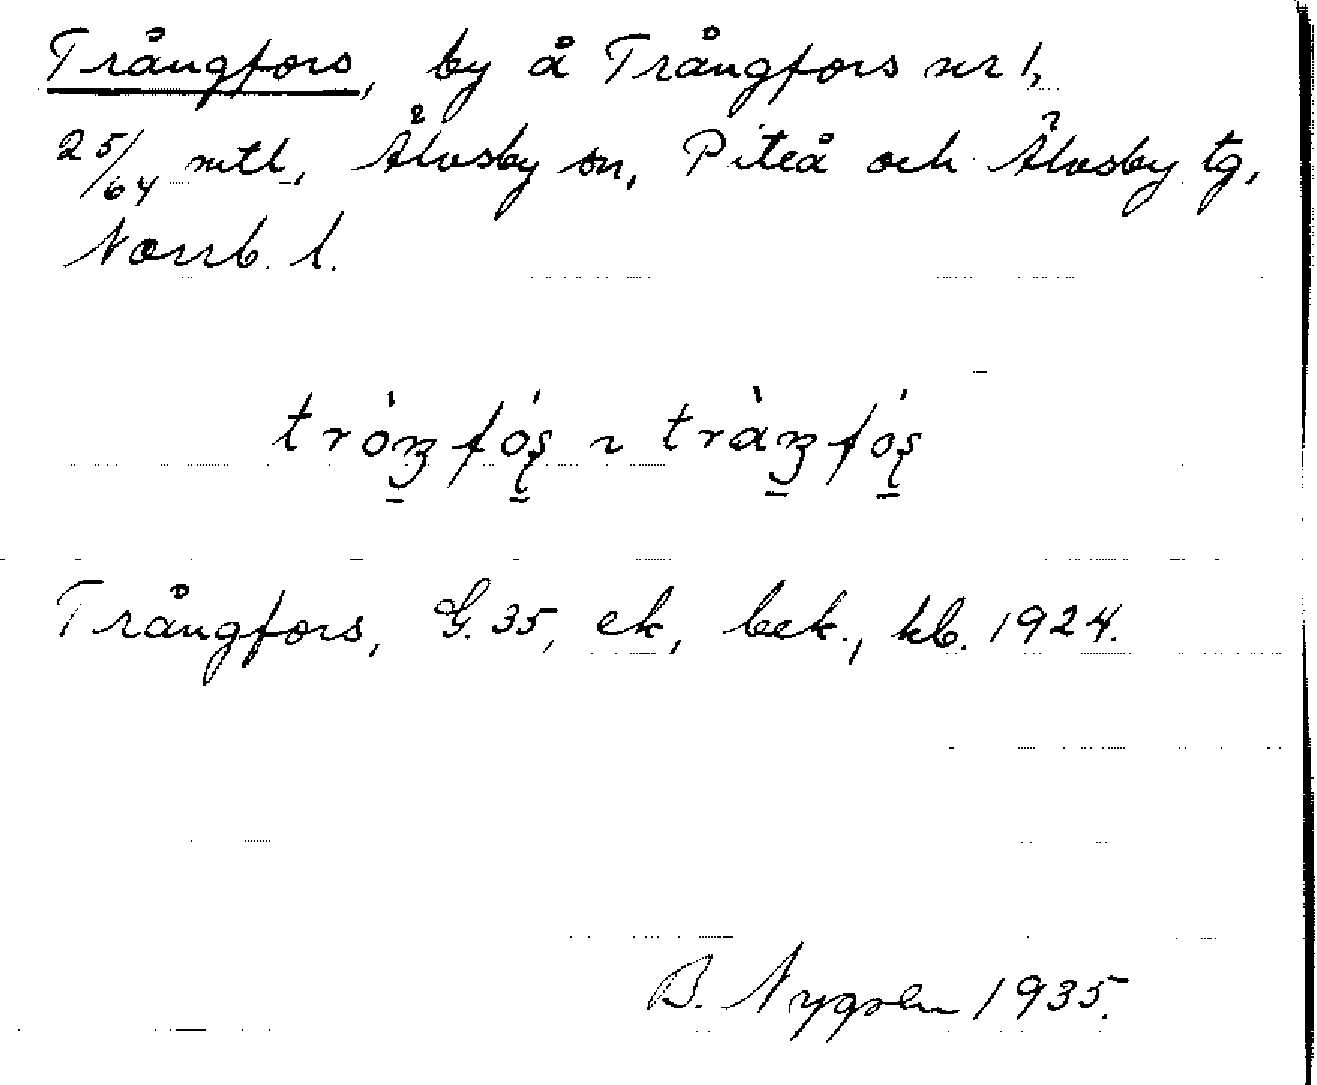 Trångfors, by å Trångfors nr 1,
2 5/64 mtl, Älvsby sn, Piteå och Älvsby tg,
Norrb. l.
Trångfors, G. 35, ek, bek., kb. 1924.
B. Nygren 1935.